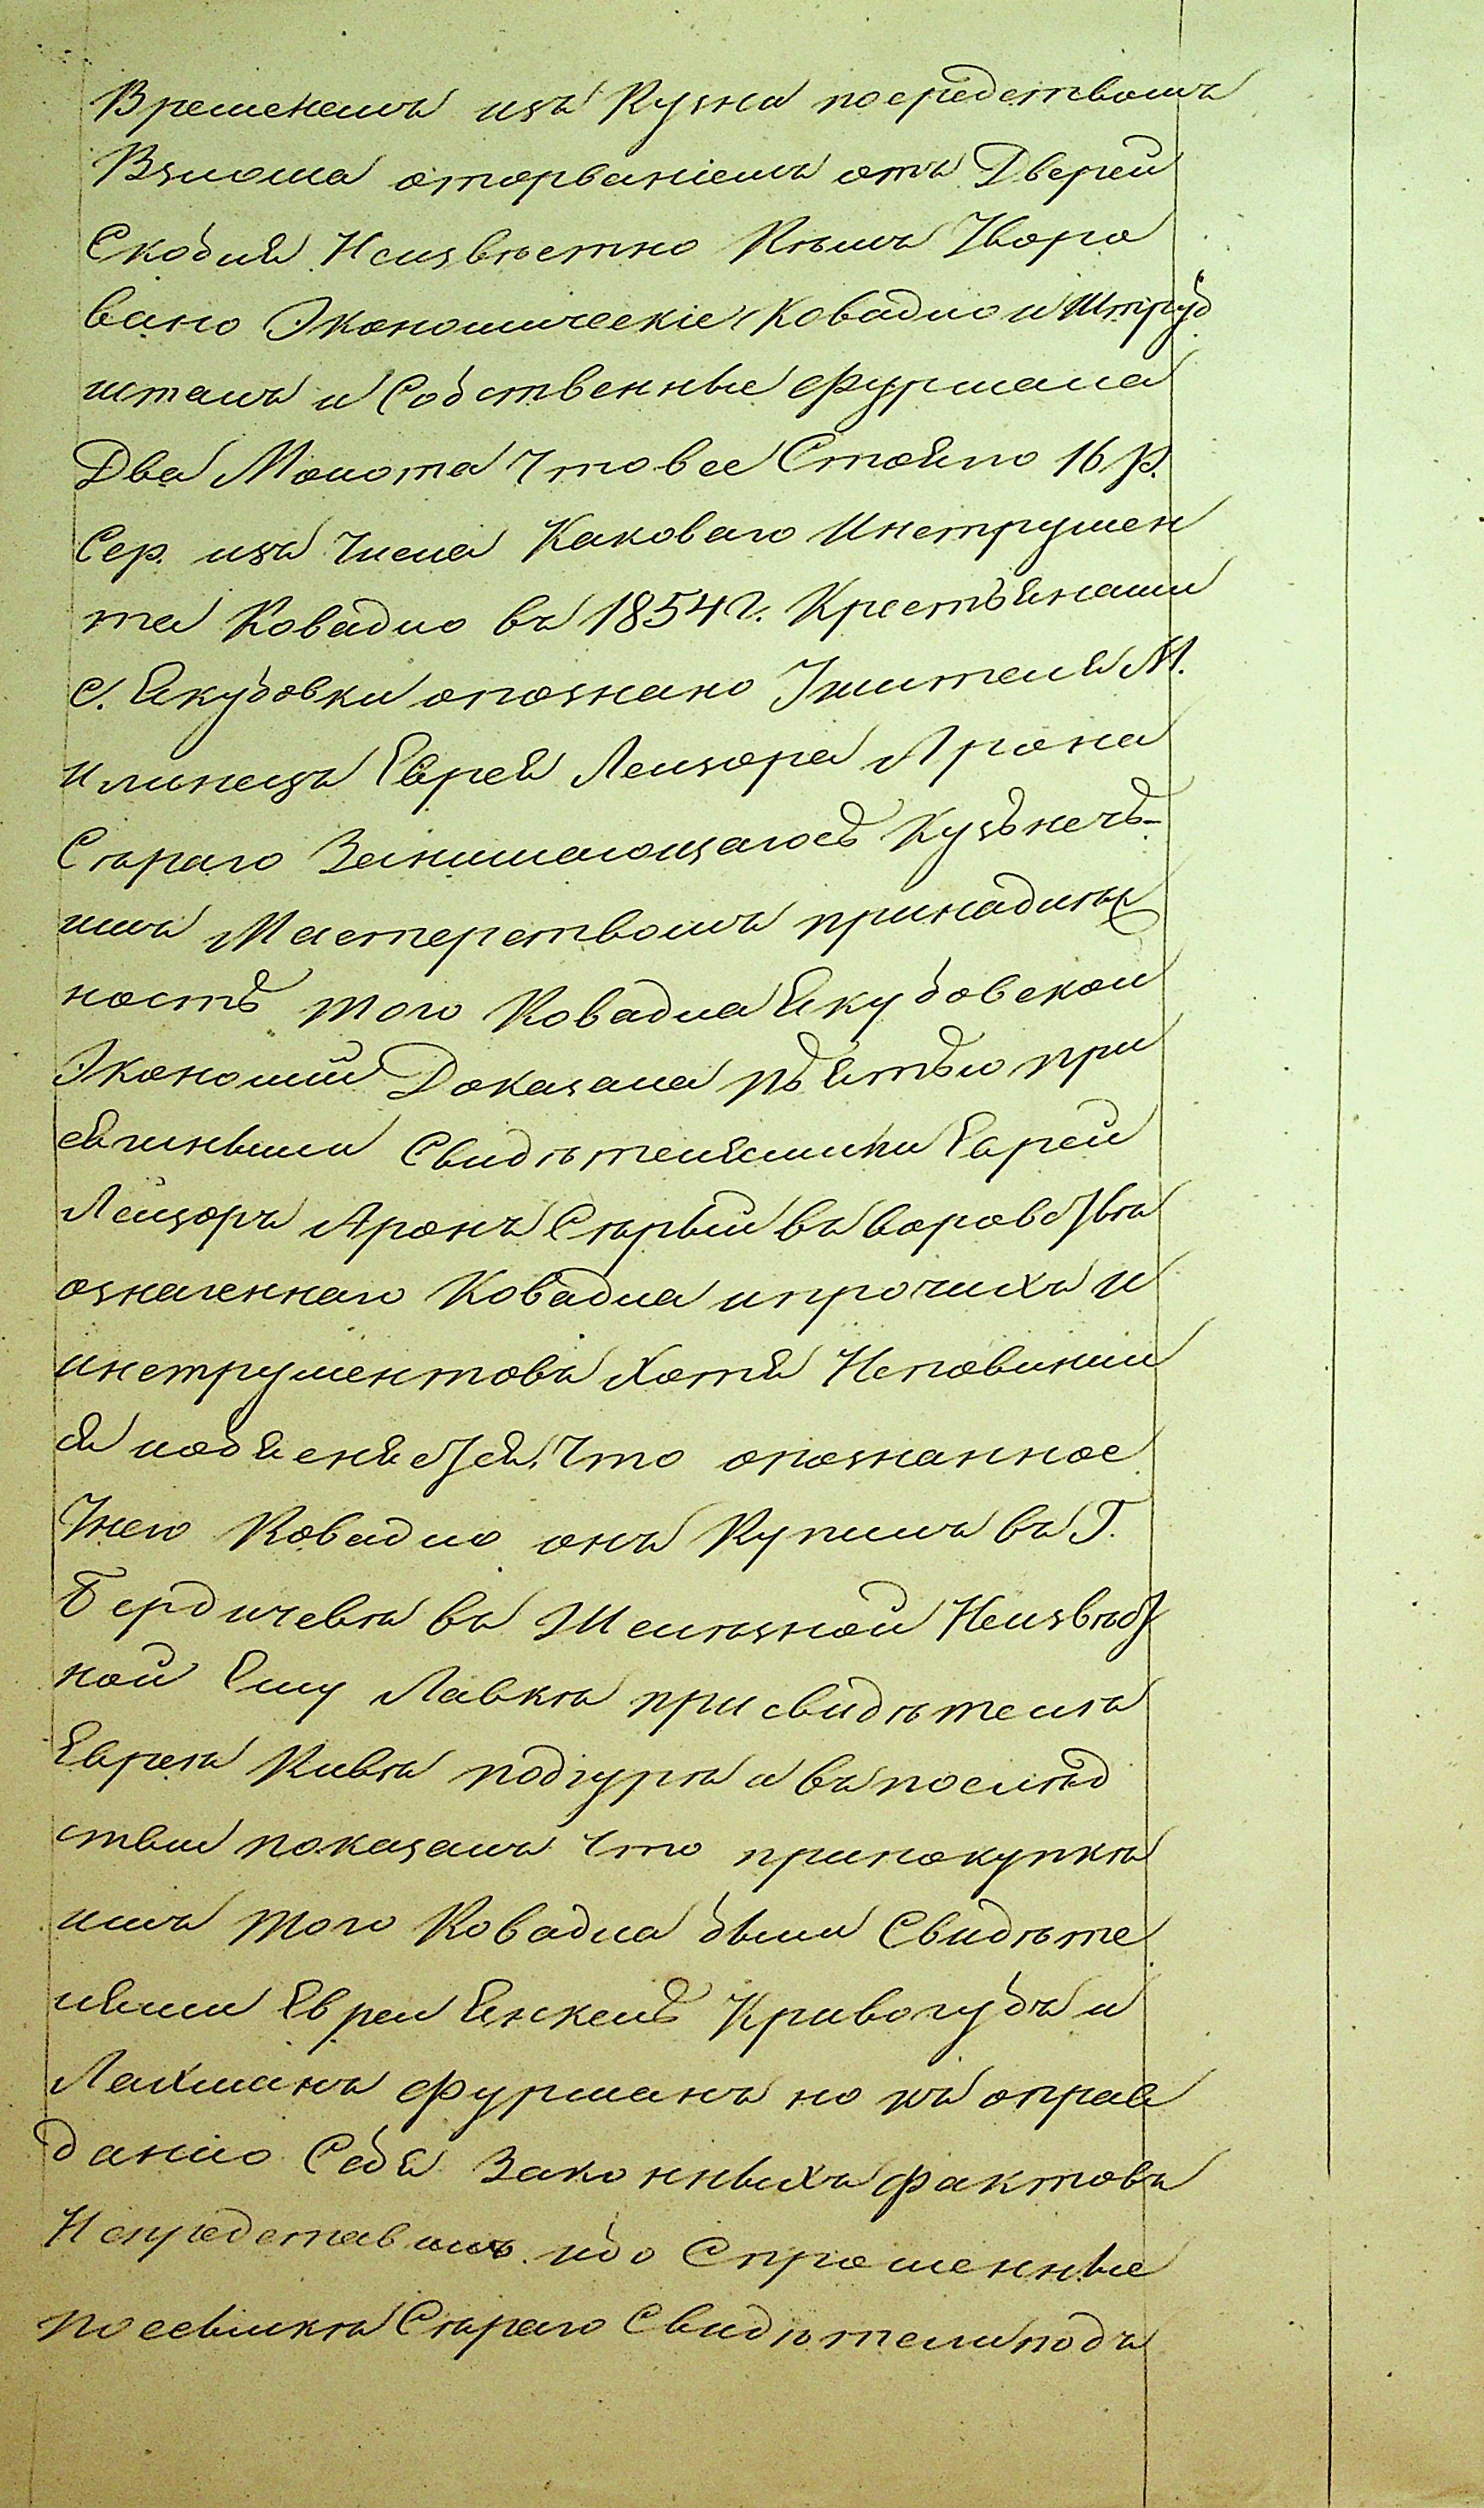 Временемъ изъ Кузни посредствомъ
Взлома оторваніемъ отъ Дверей
Скобля Неизвѣстно Кѣмъ Уворо
вано Экономическіе Ковадло и Штруб
штакъ и Собственные Фурмана
Два Молота Что все Стоило 16 р.
Сер. изъ Числа Каковаго Инструмен
та Ковадло въ 1854 г. Крестьянами
с. Якубовки опознано Ужителя М.
Илинецъ Еврея Лейзора Арона
Сѣраго Занимающагось Кузьнечь-
имъ Мастерствомъ принадлѣж
ность того Ковадла Якубовской
Экономій Доказана пьятью при
сяжными Свидѣтелямики Еврей
Лейзоръ Аронъ Сѣрый въ воровствѣ
означеннаго Ковадла и прочихъ и
инструментовъ Хотя Неповинил
ся изобясняется. Что опознанное
Унего Ковадло онъ Купилъ въ Г.
Бердичевѣ въ Желѣзной Неизвѣст
ной Ему Лавкѣ при свидѣтелѣ
Евреѣ Кивѣ подгурѣ и въ послѣд
ствіи показалъ что при покупкѣ
имъ того Ковадла были Свидѣте
лями Евреи Янкель Кривогубъ и
Лахманъ Фурманъ но къ оправ
данію Себя Законныхъ фактовъ
Непредставилъ ибо Спрошенные
по ссылкѣ Сѣраго Свидѣтели подъ